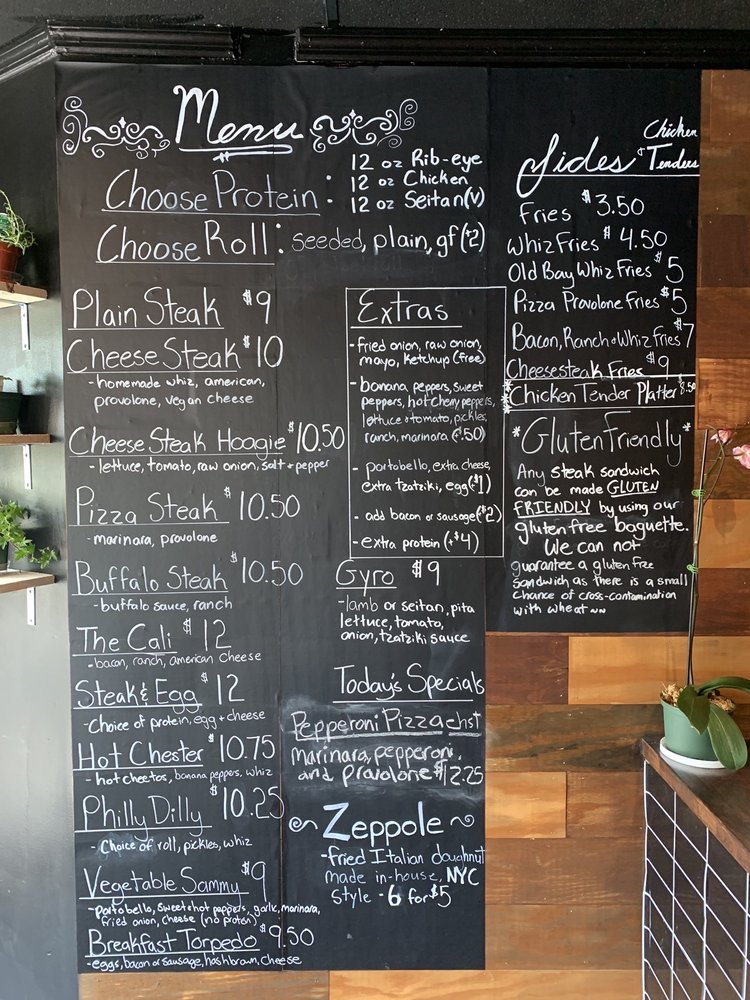 Menu
Choose Protein:
12 oz Rib-eye
12 oz Chicken
12 oz Seitan(v)
Choose Roll: seeded, plain, gf($2)
Plain Steak $9
Cheese Steak $10
-homemade whiz, american,
provolone, vegan cheese
Cheese Steak Hoagie $10.50
-lettuce, tomato, raw onion, salt + pepper
Pizza Steak $10.50
-marinara, provolone
Buffalo Steak $10.50
-buffalo sauce, ranch
The Cali $12
-bacon, ranch, american cheese
Steak & Egg $12
-Choice of protein, egg + cheese
Hot Chester $10.75
-hot cheetos, banana peppers, whiz
Philly Dilly $10.25
-Choice of roll, pickles, whiz
Vegetable Sammy $9
-Portobello, sweet + hot peppers, garlic, marinara,
fried onion, cheese (no protein)
Breakfast Torpedo $9.50
-eggs, bacon or sausage, hashbrown, cheese
Extras
-fried onion, raw onion,
mayo, ketchup (free)
-banana peppers, sweet
peppers, hot cherry peppers,
lettuce + tomato, pickles,
ranch, marinara ($.50)
-portobello, extra cheese,
extra tzatziki, egg ($1)
-add bacon or sausage ($2)
-extra protein (+$4)
Gyro $9
-lamb or seitan, pita
lettuce, tomato,
onion, tzatziki sauce
Today's Specials
Pepperoni Pizza chst
marinara, pepperoni,
and provolone $12.25
Zeppole
-fried Italian doughnut
made in-house, NYC
style - 6 for $5
Sides & Chicken Tenders
Fries $3.50
Whiz Fries $4.50
Old Bay Whiz Fries $5
Pizza Provolone Fries $5
Bacon, Ranch & Whiz Fries $7
Cheesesteak Fries $9
Chicken Tender Platter $8.50
*Gluten Friendly*
Any steak sandwich
can be made GLUTEN
FRIENDLY by using our
gluten free baguette.
We can not
guarantee a gluten free
sandwich as there is a small
chance of cross-contamination
with wheat